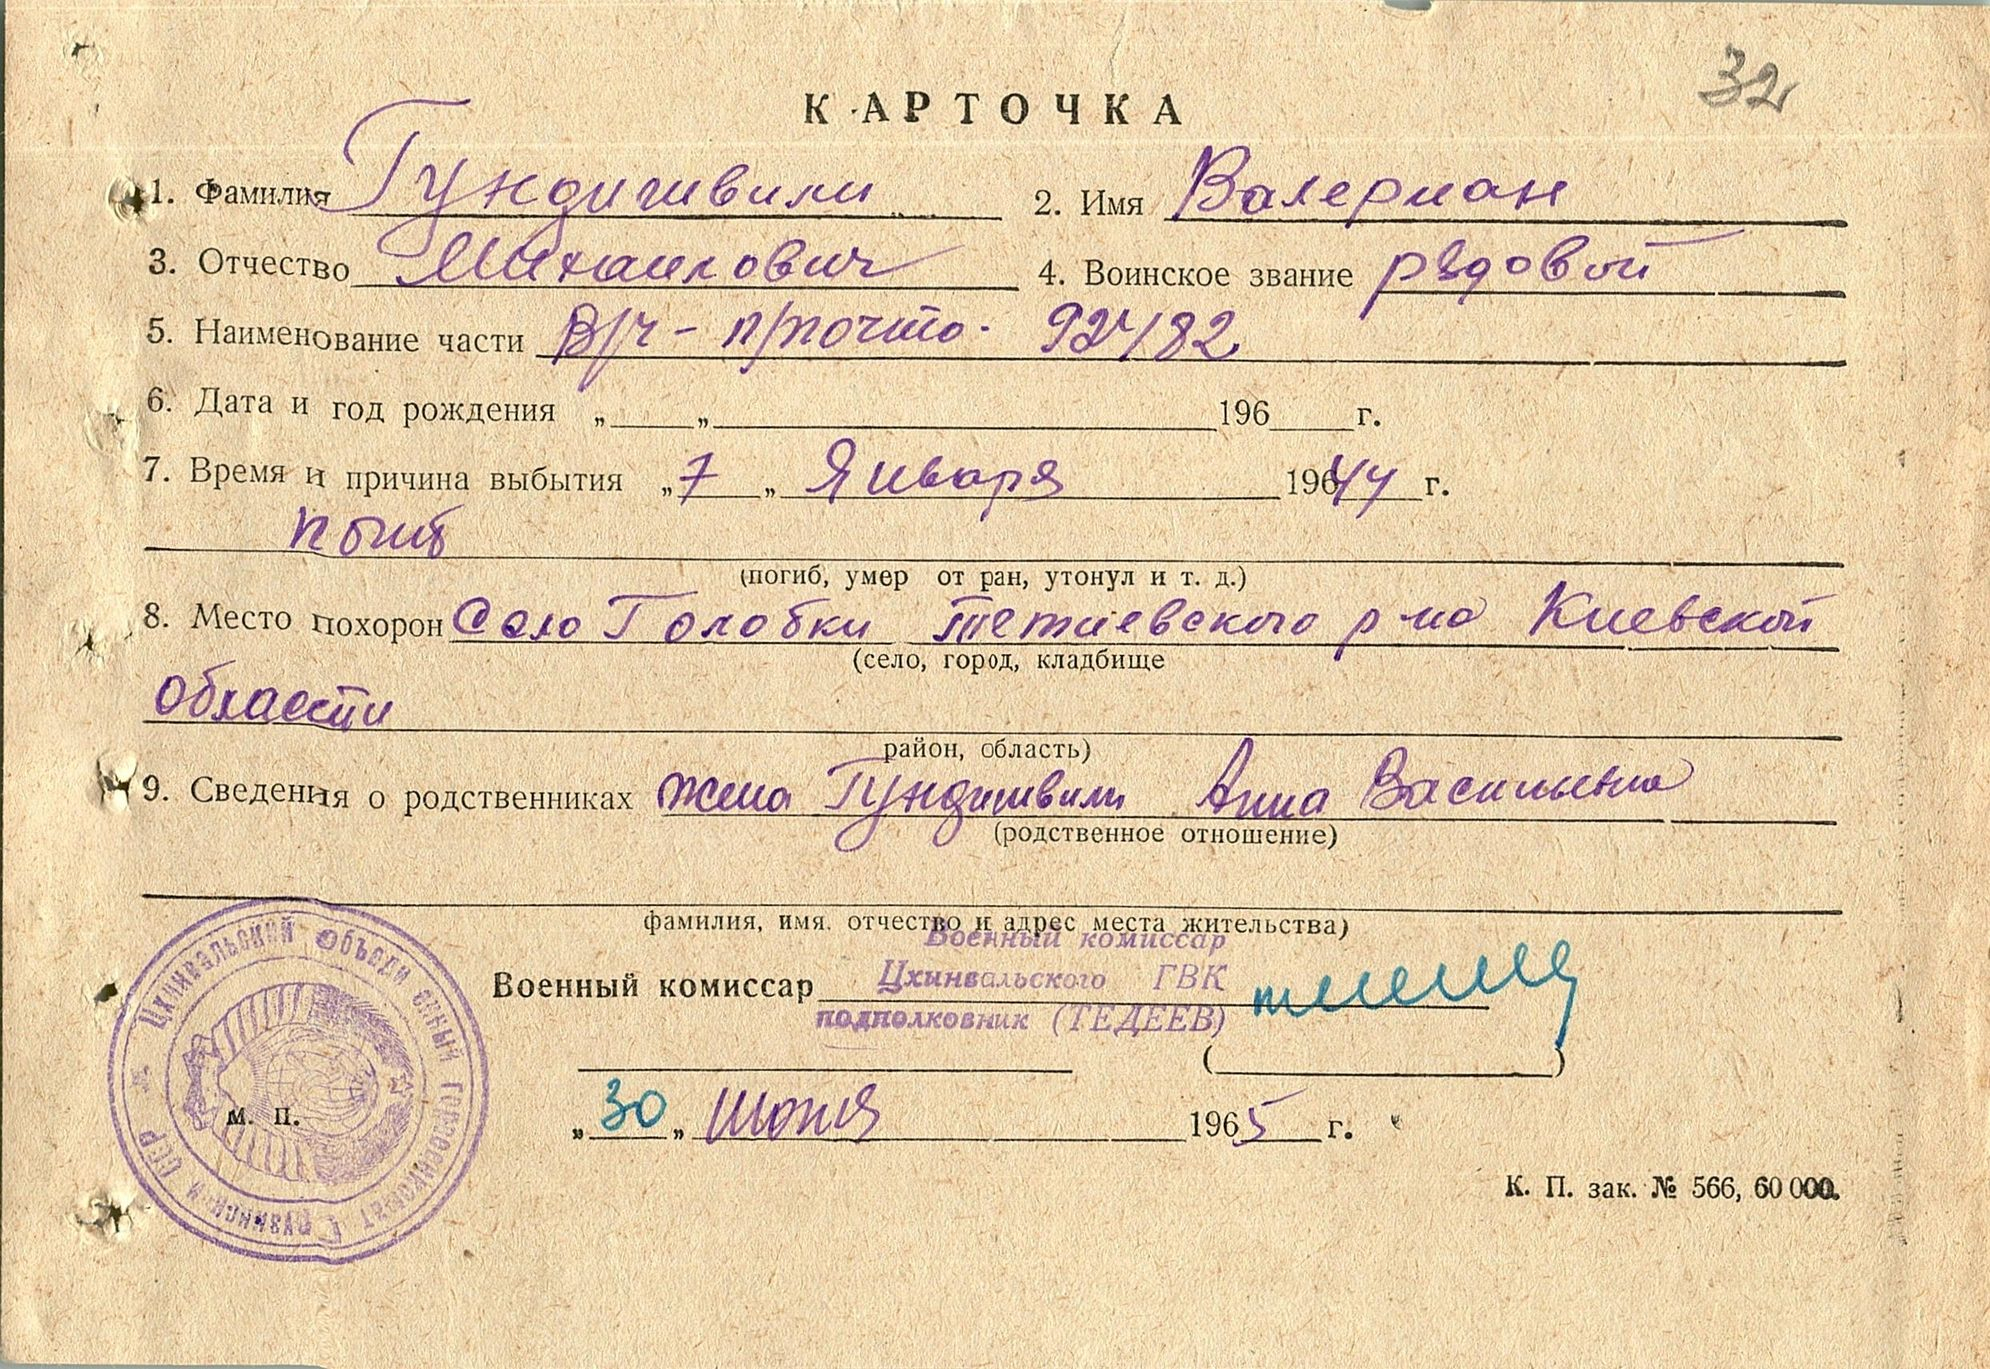 32
КАРТОЧКА
1. Фамилия Гундишвили 2. Имя Валериан
3. Отчество Михаилович 4. Воинское звание рядовой
5. Наименование части В/ч - п/почта. 92782
6. Дата и год рождения „ „ 196 г.
7. Время и причина выбытия „7„ Января 19644 г.
погиб
(погиб, умер от ран, утонул и т. д.)
8. Место похорон Село Голобки тетиевского р-на Киевской
(село, город, кладбище
области
район, область)
9. Сведения о родственниках жена Гундишвили Анна Васильевна
(родственное отношение)
фамилия, имя, отчество и адрес места жительства)
Военный комиссар
Военный комиссар Цхинвальского ГВК
подполковник (ТЕДЕЕВ)
( )
„30„ июня 1965 г.
м. п.
Цхинвальский Объединенный Горвоенкомат Грузинской ССР
К. П. зак. № 566, 60 000.